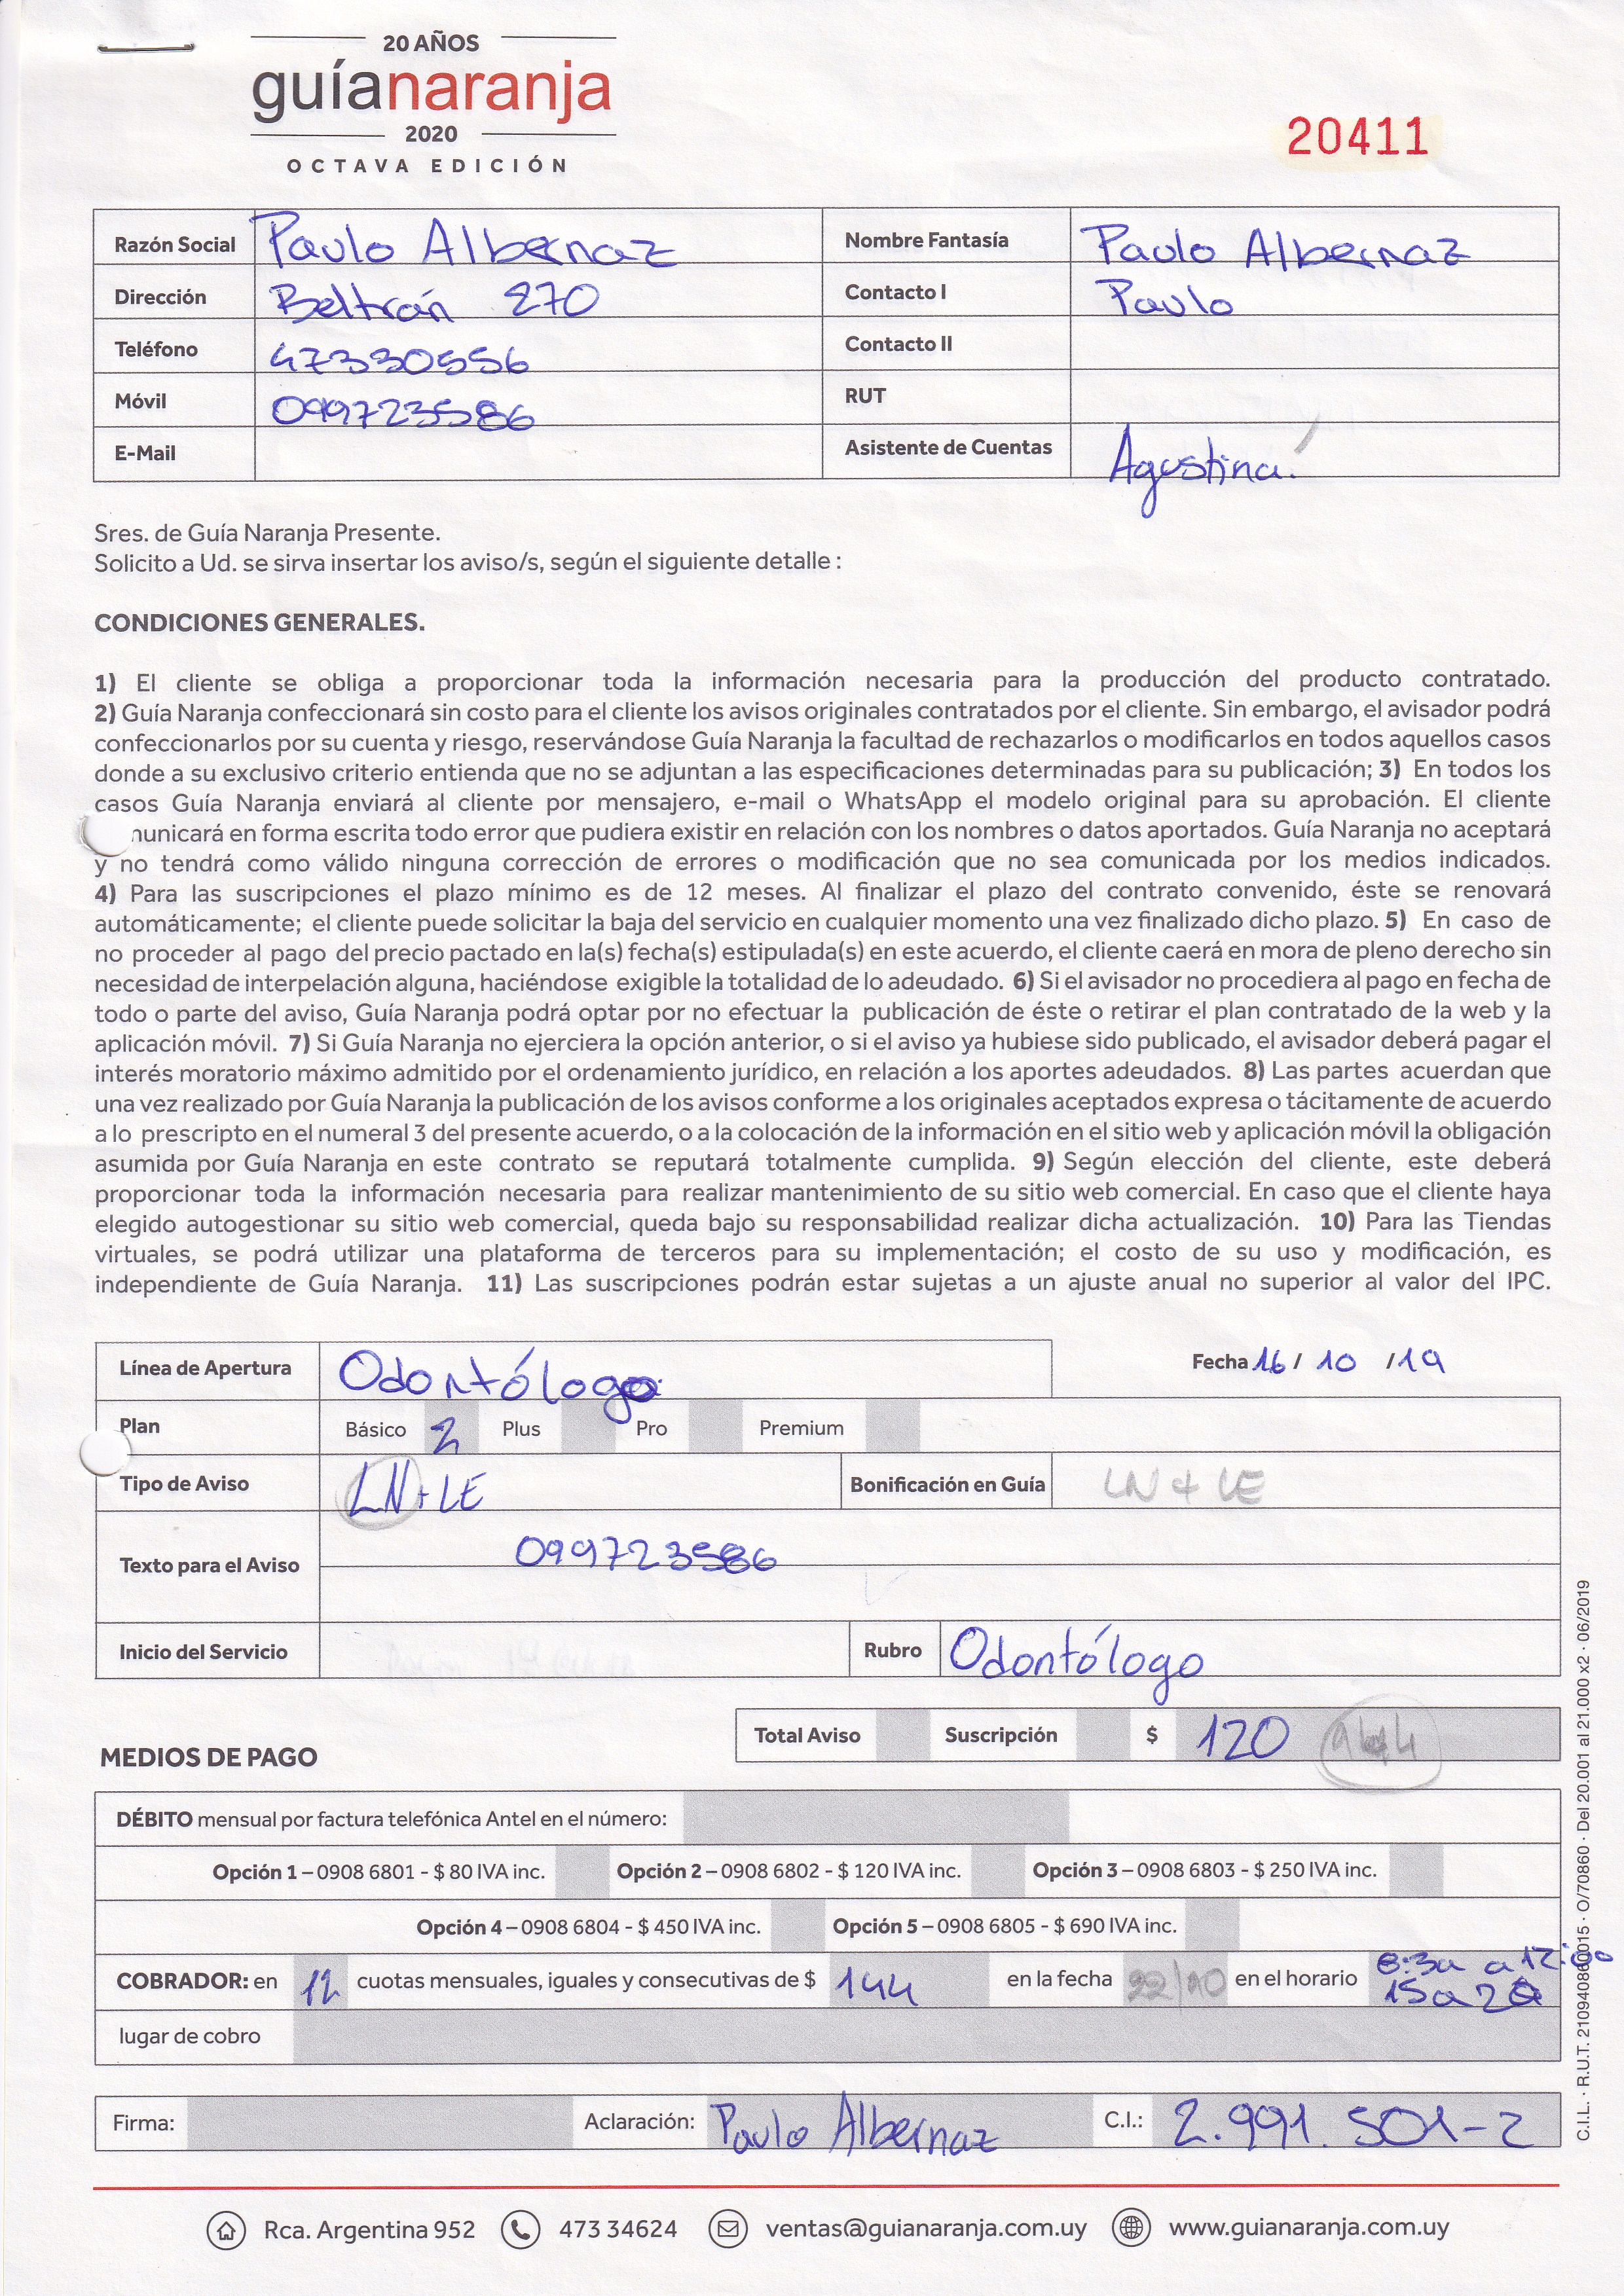 20 AÑOS
guíanaranja
2020
OCTAVA EDICIÓN
20411
Razón Social Paulo Albernaz Nombre Fantasía Paulo Albernaz
Dirección Beltrán 270 Contacto I Paulo
Teléfono 47330556 Contacto II
Móvil 099723586 RUT
E-Mail Asistente de Cuentas Agostina.
Sres. de Guía Naranja Presente.
Solicito a Ud. se sirva insertar los aviso/s, según el siguiente detalle :
CONDICIONES GENERALES.
1) El cliente se obliga a proporcionar toda la información necesaria para la producción del producto contratado.
2) Guía Naranja confeccionará sin costo para el cliente los avisos originales contratados por el cliente. Sin embargo, el avisador podrá
confeccionarlos por su cuenta y riesgo, reservándose Guía Naranja la facultad de rechazarlos o modificarlos en todos aquellos casos
donde a su exclusivo criterio entienda que no se adjuntan a las especificaciones determinadas para su publicación; 3) En todos los
casos Guía Naranja enviará al cliente por mensajero, e-mail o WhatsApp el modelo original para su aprobación. El cliente
municará en forma escrita todo error que pudiera existir en relación con los nombres o datos aportados. Guía Naranja no aceptará
y no tendrá como válido ninguna corrección de errores o modificación que no sea comunicada por los medios indicados.
4) Para las suscripciones el plazo mínimo es de 12 meses. Al finalizar el plazo del contrato convenido, éste se renovará
automáticamente; el cliente puede solicitar la baja del servicio en cualquier momento una vez finalizado dicho plazo. 5) En caso de
no proceder al pago del precio pactado en la(s) fecha(s) estipulada(s) en este acuerdo, el cliente caerá en mora de pleno derecho sin
necesidad de interpelación alguna, haciéndose exigible la totalidad de lo adeudado. 6) Si el avisador no procediera al pago en fecha de
todo o parte del aviso, Guía Naranja podrá optar por no efectuar la publicación de éste o retirar el plan contratado de la web y la
aplicación móvil. 7) Si Guía Naranja no ejerciera la opción anterior, o si el aviso ya hubiese sido publicado, el avisador deberá pagar el
interés moratorio máximo admitido por el ordenamiento jurídico, en relación a los aportes adeudados. 8) Las partes acuerdan que
una vez realizado por Guía Naranja la publicación de los avisos conforme a los originales aceptados expresa o tácitamente de acuerdo
a lo prescripto en el numeral 3 del presente acuerdo, o a la colocación de la información en el sitio web y aplicación móvil la obligación
asumida por Guía Naranja en este contrato se reputará totalmente cumplida. 9) Según elección del cliente, este deberá
proporcionar toda la información necesaria para realizar mantenimiento de su sitio web comercial. En caso que el cliente haya
elegido autogestionar su sitio web comercial, queda bajo su responsabilidad realizar dicha actualización. 10) Para las Tiendas
virtuales, se podrá utilizar una plataforma de terceros para su implementación; el costo de su uso y modificación, es
independiente de Guía Naranja. 11) Las suscripciones podrán estar sujetas a un ajuste anual no superior al valor del IPC.
Línea de Apertura Odontólogo Fecha 16 / 10 / 19
Plan Básico 2 Plus Pro Premium
Tipo de Aviso LN + LE Bonificación en Guía LN + LE
Texto para el Aviso 099723586
Inicio del Servicio Rubro Odontólogo
Total Aviso Suscripción $ 120 144
MEDIOS DE PAGO
DÉBITO mensual por factura telefónica Antel en el número:
Opción 1 – 0908 6801 - $ 80 IVA inc. Opción 2 – 0908 6802 - $ 120 IVA inc. Opción 3 – 0908 6803 - $ 250 IVA inc.
Opción 4 – 0908 6804 - $ 450 IVA inc. Opción 5 – 0908 6805 - $ 690 IVA inc.
COBRADOR: en 12 cuotas mensuales, iguales y consecutivas de $ 144 en la fecha 22/10 en el horario 8:30 a 12:00
15 a 20
lugar de cobro
Firma: Aclaración: Paulo Albernaz C.I.: 2.991.501-2
Rca. Argentina 952 473 34624 ventas@guianaranja.com.uy www.guianaranja.com.uy
C.I.L. · R.U.T. 210940860015 · O/70860 · Del 20.001 al 21.000 x2 · 06/2019